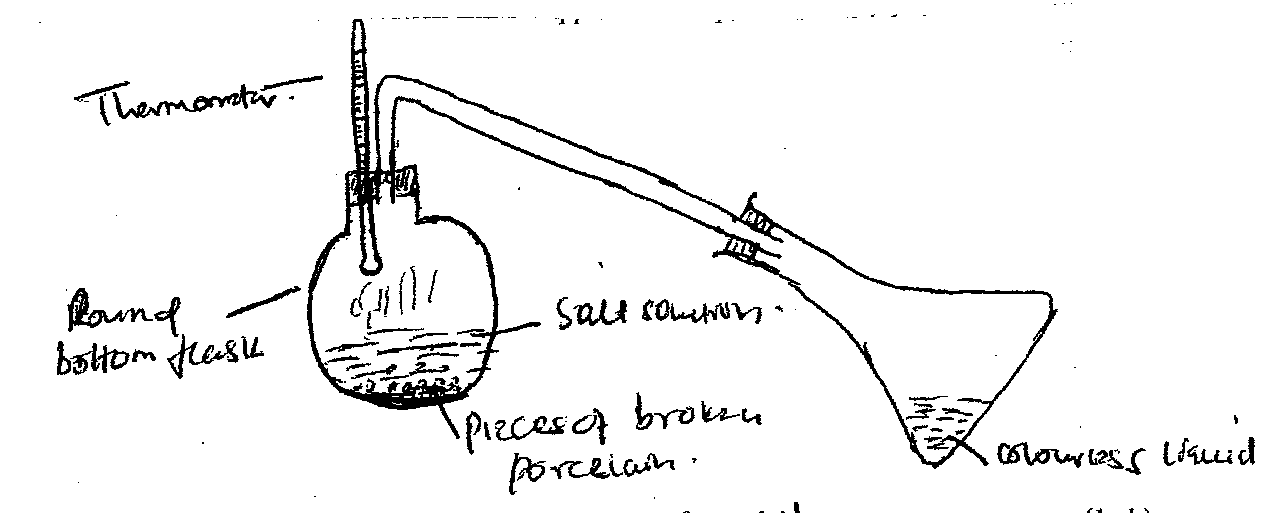 Thermometer.
Round
bottom flask
Salt solution.
Pieces of broken
porcelain.
colourless liquid